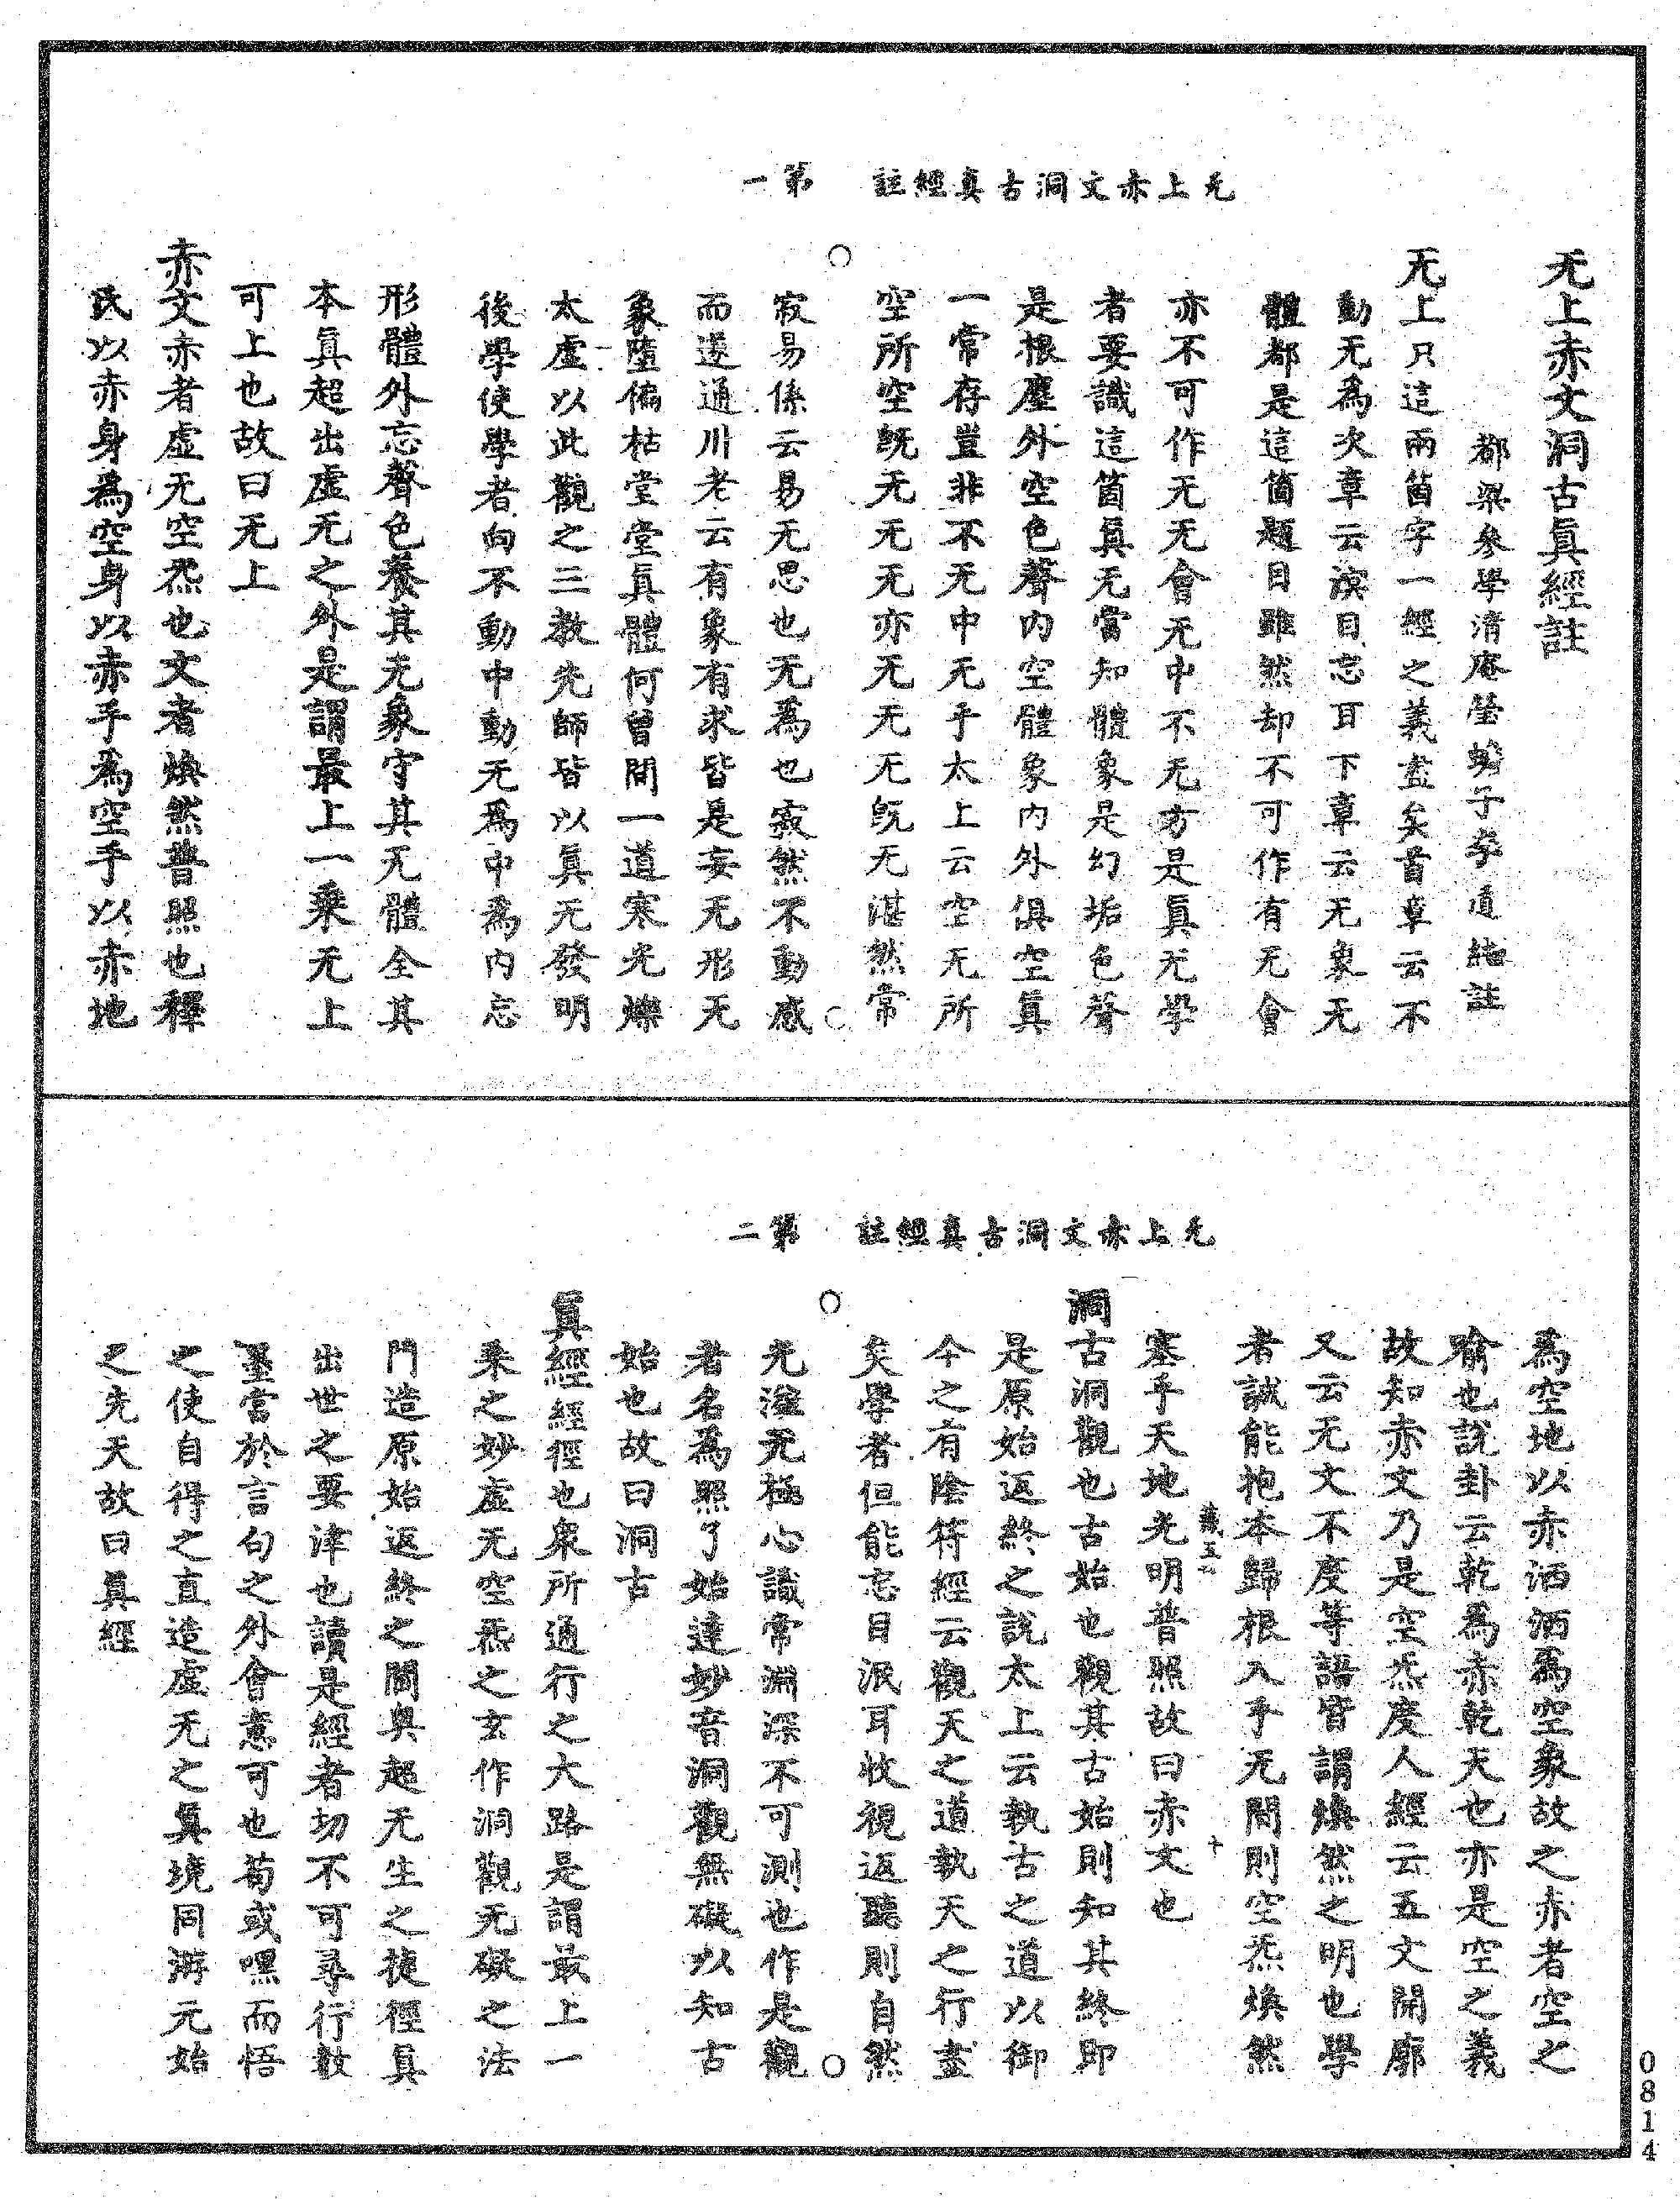 无上赤文洞古真經註　第一
无上赤文洞古眞經註
都梁參學清庵瑩蟾子李道純註
无上只這兩箇字一經之義盡矣首章云不
動无爲次章云溟目忘耳下章云无象无
體都是這箇題目雖然却不可作有无會
亦不可作无无會无中不无方是眞无學
者要識這箇眞无當知體象是幻垢色聲
是根塵外空色聲內空體象內外俱空眞
一常存豈非不无中无乎太上云空无所
空所空旣无无无亦无无无旣无湛然常
寂易係云易无思也无爲也寂然不動感
而遂通川老云有象有求皆是妄无形无
象墮偏枯堂堂眞體何曾間一道寒光爍
太虛以此觀之三教先師皆以眞无發明
後學使學者向不動中動无爲中爲內忘
形體外忘聲色養其无象守其无體全其
本眞超出虛无之外是謂最上一乘无上
可上也故曰无上
赤文赤者虛无空炁也文者煥然普照也釋
氏以赤身爲空身以赤手爲空手以赤地
无上赤文洞古真經註　第二
爲空地以赤洒洒爲空象故之赤者空之
喻也說卦云乾爲赤乾天也亦是空之義
故知赤文乃是空炁度人經云五文開廓
又云无文不度等語皆謂煥然之明也學
者誠能抱本歸根入乎无間則空炁煥然
塞乎天地光明普照故曰赤文也
洞古洞觀也古始也觀其古始則知其終即
是原始返終之說太上云執古之道以御
今之有陰符經云觀天之道執天之行盡
矣學者但能忘目泯耳收視返聽則自然
无滋无極心識常淵深不可測也作是觀
者名爲照了始達妙音洞觀無礙以知古
始也故曰洞古
眞經經徑也衆所通行之大路是謂最上一
乘之妙虛无空炁之玄作洞觀无礙之法
門造原始返終之閫奥超无生之捷徑眞
出世之要津也讀是經者切不可尋行數
墨當於言句之外會意可也苟或嘿而悟
之使自得之直造虛无之眞境同游元始
之先天故曰眞經
0814